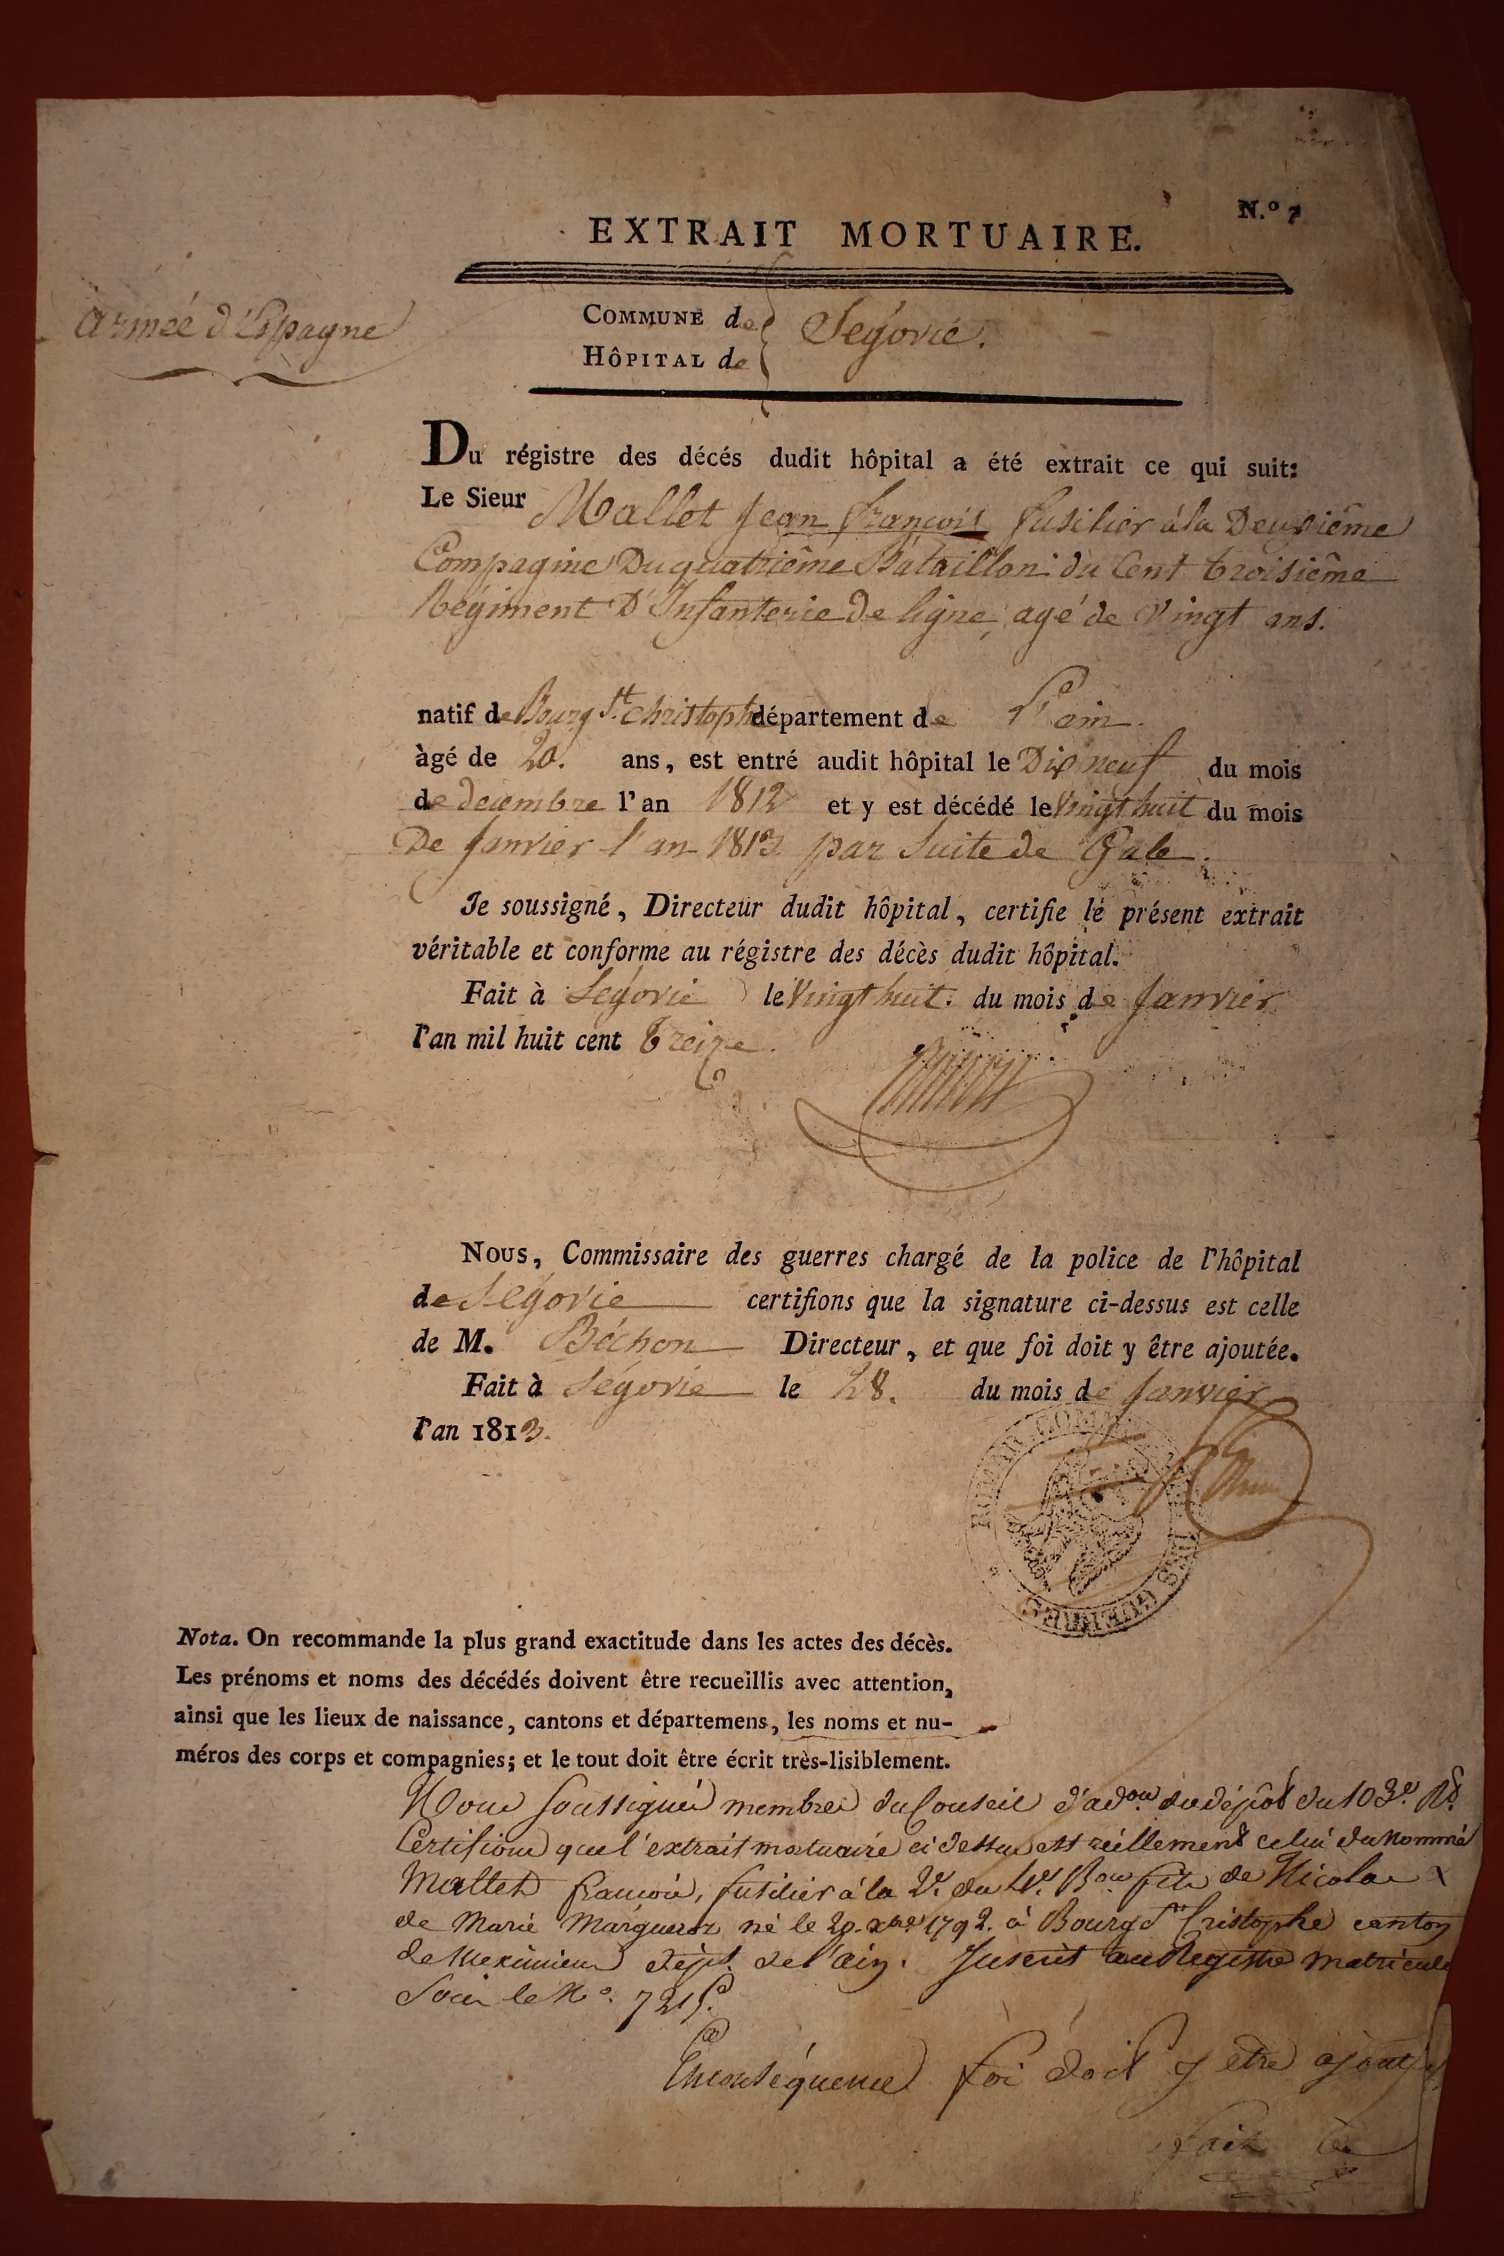 N.º 7
EXTRAIT MORTUAIRE.
Armée d'Espagne
COMMUNE de
HÔPITAL de
Ségovie.
Du régistre des décés dudit hôpital a été extrait ce qui suit:
Le Sieur Mallet Jean François fusilier à la Deuxième
Compagnie Du quatrième Bataillon du Cent troisième
Régiment D'Infanterie de ligne, agé de Vingt ans.
natif de Bourg St. Christophe département de l'ain.
àgé de 20. ans, est entré audit hôpital le Dix neuf du mois
de decembre l'an 1812 et y est décédé le Vingt huit du mois
De Janvier l'an 1813 par Suite de Gale.
Je soussigné, Directeur dudit hôpital, certifie le présent extrait
véritable et conforme au régistre des décès dudit hôpital.
Fait à Ségovie le Vingt huit. du mois de Janvier
l'an mil huit cent Treize.
Nous, Commissaire des guerres chargé de la police de l'hôpital
de Ségovie certifions que la signature ci-dessus est celle
de M. Béchon Directeur, et que foi doit y être ajoutée.
Fait à Ségovie le 28. du mois de Janvier
l'an 1813.
Nota. On recommande la plus grand exactitude dans les actes des décès.
Les prénoms et noms des décédés doivent être recueillis avec attention,
ainsi que les lieux de naissance, cantons et départemens, les noms et nu-
méros des corps et compagnies; et le tout doit être écrit très-lisiblement.
Nous soussignés membres du Conseil d'adon du dépôt du 103e. Rt.
Certifions que l'extrait mortuaire ci dessus est réellement celui du nommé
Mallet françois, fusilier à la 2e. du 4e. Bon fils de Nicolas &
de Marie Marguerot né le 20. xbre 1792. à Bourg St Cristophe canton
de Meximieux dépt. de l'ain. Inscrit au Registre matricule
Sous le No. 7215.
En conséquence foi doit y être ajoutée
fait à